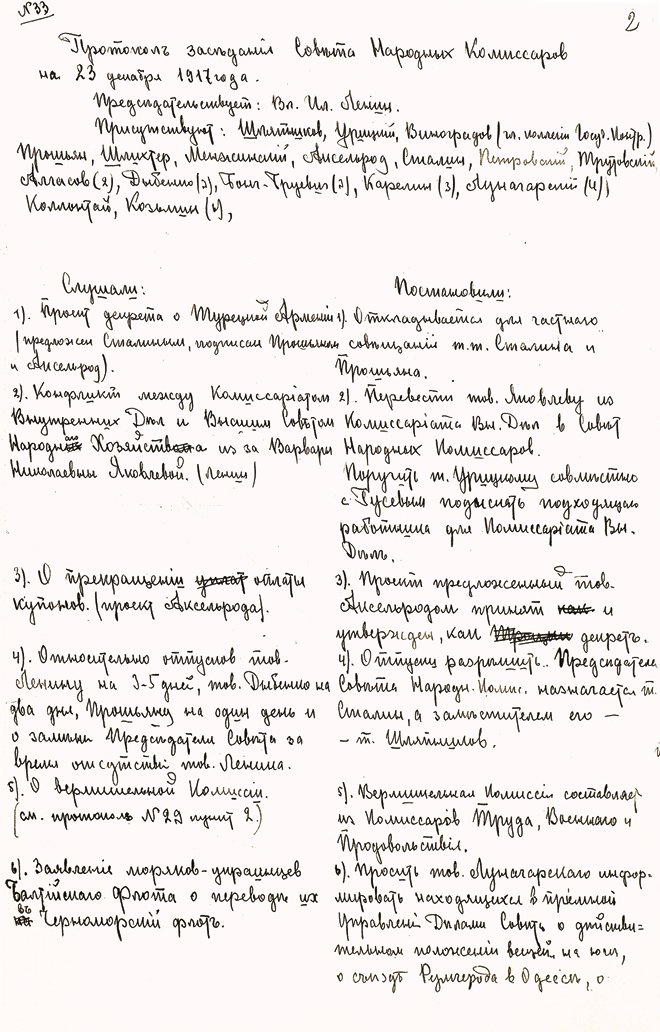 № 33
2
Протоколъ засѣданія Совѣта Народныхъ Комиссаров
на 23 декабря 1917 года.
Предсѣдательствует: Вл. Ил. Ленин.
Присутствуют: Шляпников, Урицкий, Виноградов (гл. коллегіи Госуд. Контр.)
Прошьян, Шлихтер, Менжинский, Аксельрод, Сталин, Петровский, Трутовский,
Алгасов (2), Дыбенко (3), Бонч-Бруевич (3), Карелин (3), Луначарский (4),
Коллонтай, Козьмин (6),
Слушали:
1). Проект декрета о Турецкой Арменіи
(предложен Сталиным, подписан Прошьяном
и Аксельрод).
2). Конфликт между Комиссаріатом
Внутренних Дѣл и Высшим Совѣтом
Народнаго Хозяйства из за Варвары
Николаевны Яковлевой. (Ленин)
3). О прекращеніи уплат оплаты
купонов. (проект Аксельрода).
4). Относительно отпусков тов.
Ленину на 3-5 дней, тов. Дыбенко на
два дня, Прошьяну на один день и
о замѣнѣ Предсѣдателя Совѣта за
время отсутствія тов. Ленина.
5). О вермишельной Комиссіи.
(см. протоколъ № 29 пункт 2)
6). Заявленіе моряков-украинцев
Балтійскаго флота о переводѣ их
въ Черноморскій флотъ.
Постановили:
1). Откладывается для частнаго
совѣщанія т.т. Сталина и
Прошьяна.
2). Перевести тов. Яковлеву из
Комиссаріата Вн. Дѣл в Совѣт
Народных Комиссаров.
Поручить т. Урицкому совмѣстно
с Гусевым подыскать подходящаго
работника для Комиссаріата Вн.
Дѣлъ.
3). Проект предложенный тов.
Аксельродом принят как и
утвержден, как декретъ.
4). Отпуску разрѣшить. Предсѣдателем
Совѣта Народн. Комис. назначается т.
Сталин, а замѣстителем его —
— т. Шляпников.
5). Вермишельная Комиссія составляет
из Комиссаров Труда, Военнаго и
Продовольствія.
6). Просить тов. Луначарскаго инфор-
мировать находящихся в пріемной
Управленія Дѣлами Совѣта о дѣйстви=
тельном положеніи вещей на югѣ,
о съѣздѣ Румчерода в Одессѣ, о